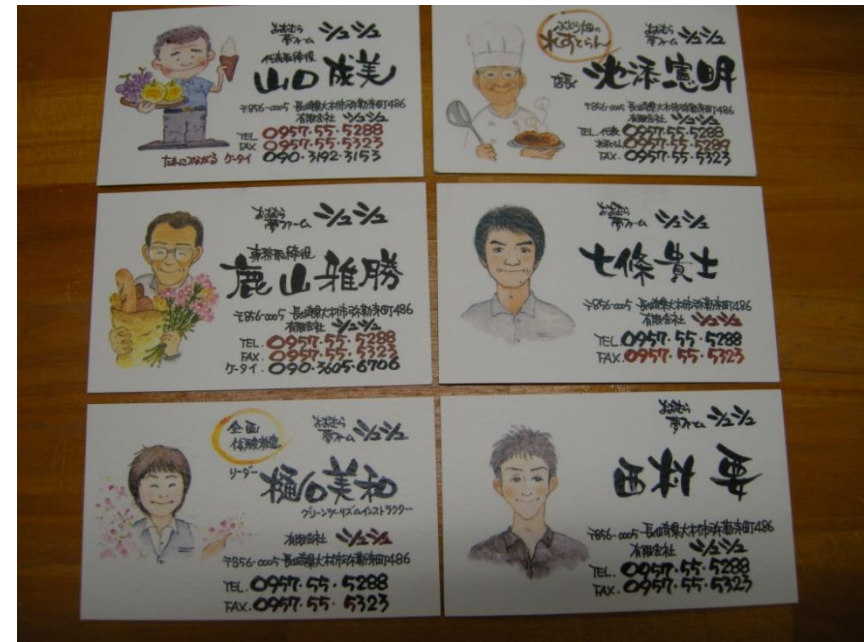 おおむら
夢ファーム シュシュ
代表取締役
山口成美
〒856-0005 長崎県大村市弥勒寺町486
有限会社 シュシュ
TEL 0957・55・5288
FAX 0957・55・5323
たまにつながる ケータイ 090・3192・3153
ぶどう畑の
れすとらん
おおむら
夢ファーム シュシュ
店長 池添憲明
〒856-0005 長崎県大村市弥勒寺町486
有限会社 シュシュ
TEL.代表 0957・55・5288
れすとらん 0957・55・5289
FAX. 0957・55・5323
おおむら
夢ファーム シュシュ
専務取締役
鹿山雅勝
〒856-0005 長崎県大村市弥勒寺町486
有限会社 シュシュ
TEL. 0957・55・5288
FAX. 0957・55・5323
ケータイ. 090・3605・6706
おおむら
夢ファーム シュシュ
七條貴士
〒856-0005 長崎県大村市弥勒寺町486
有限会社 シュシュ
TEL. 0957・55・5288
FAX. 0957・55・5323
企画
体験教室
おおむら
夢ファーム シュシュ
リーダー
樋口美和
グリーンツーリズムインストラクター
有限会社 シュシュ
〒856-0005 長崎県大村市弥勒寺町486
TEL. 0957・55・5288
FAX. 0957・55・5323
おおむら
夢ファーム シュシュ
田村 要
〒856-0005 長崎県大村市弥勒寺町486
有限会社 シュシュ
TEL. 0957・55・5288
FAX. 0957・55・5323